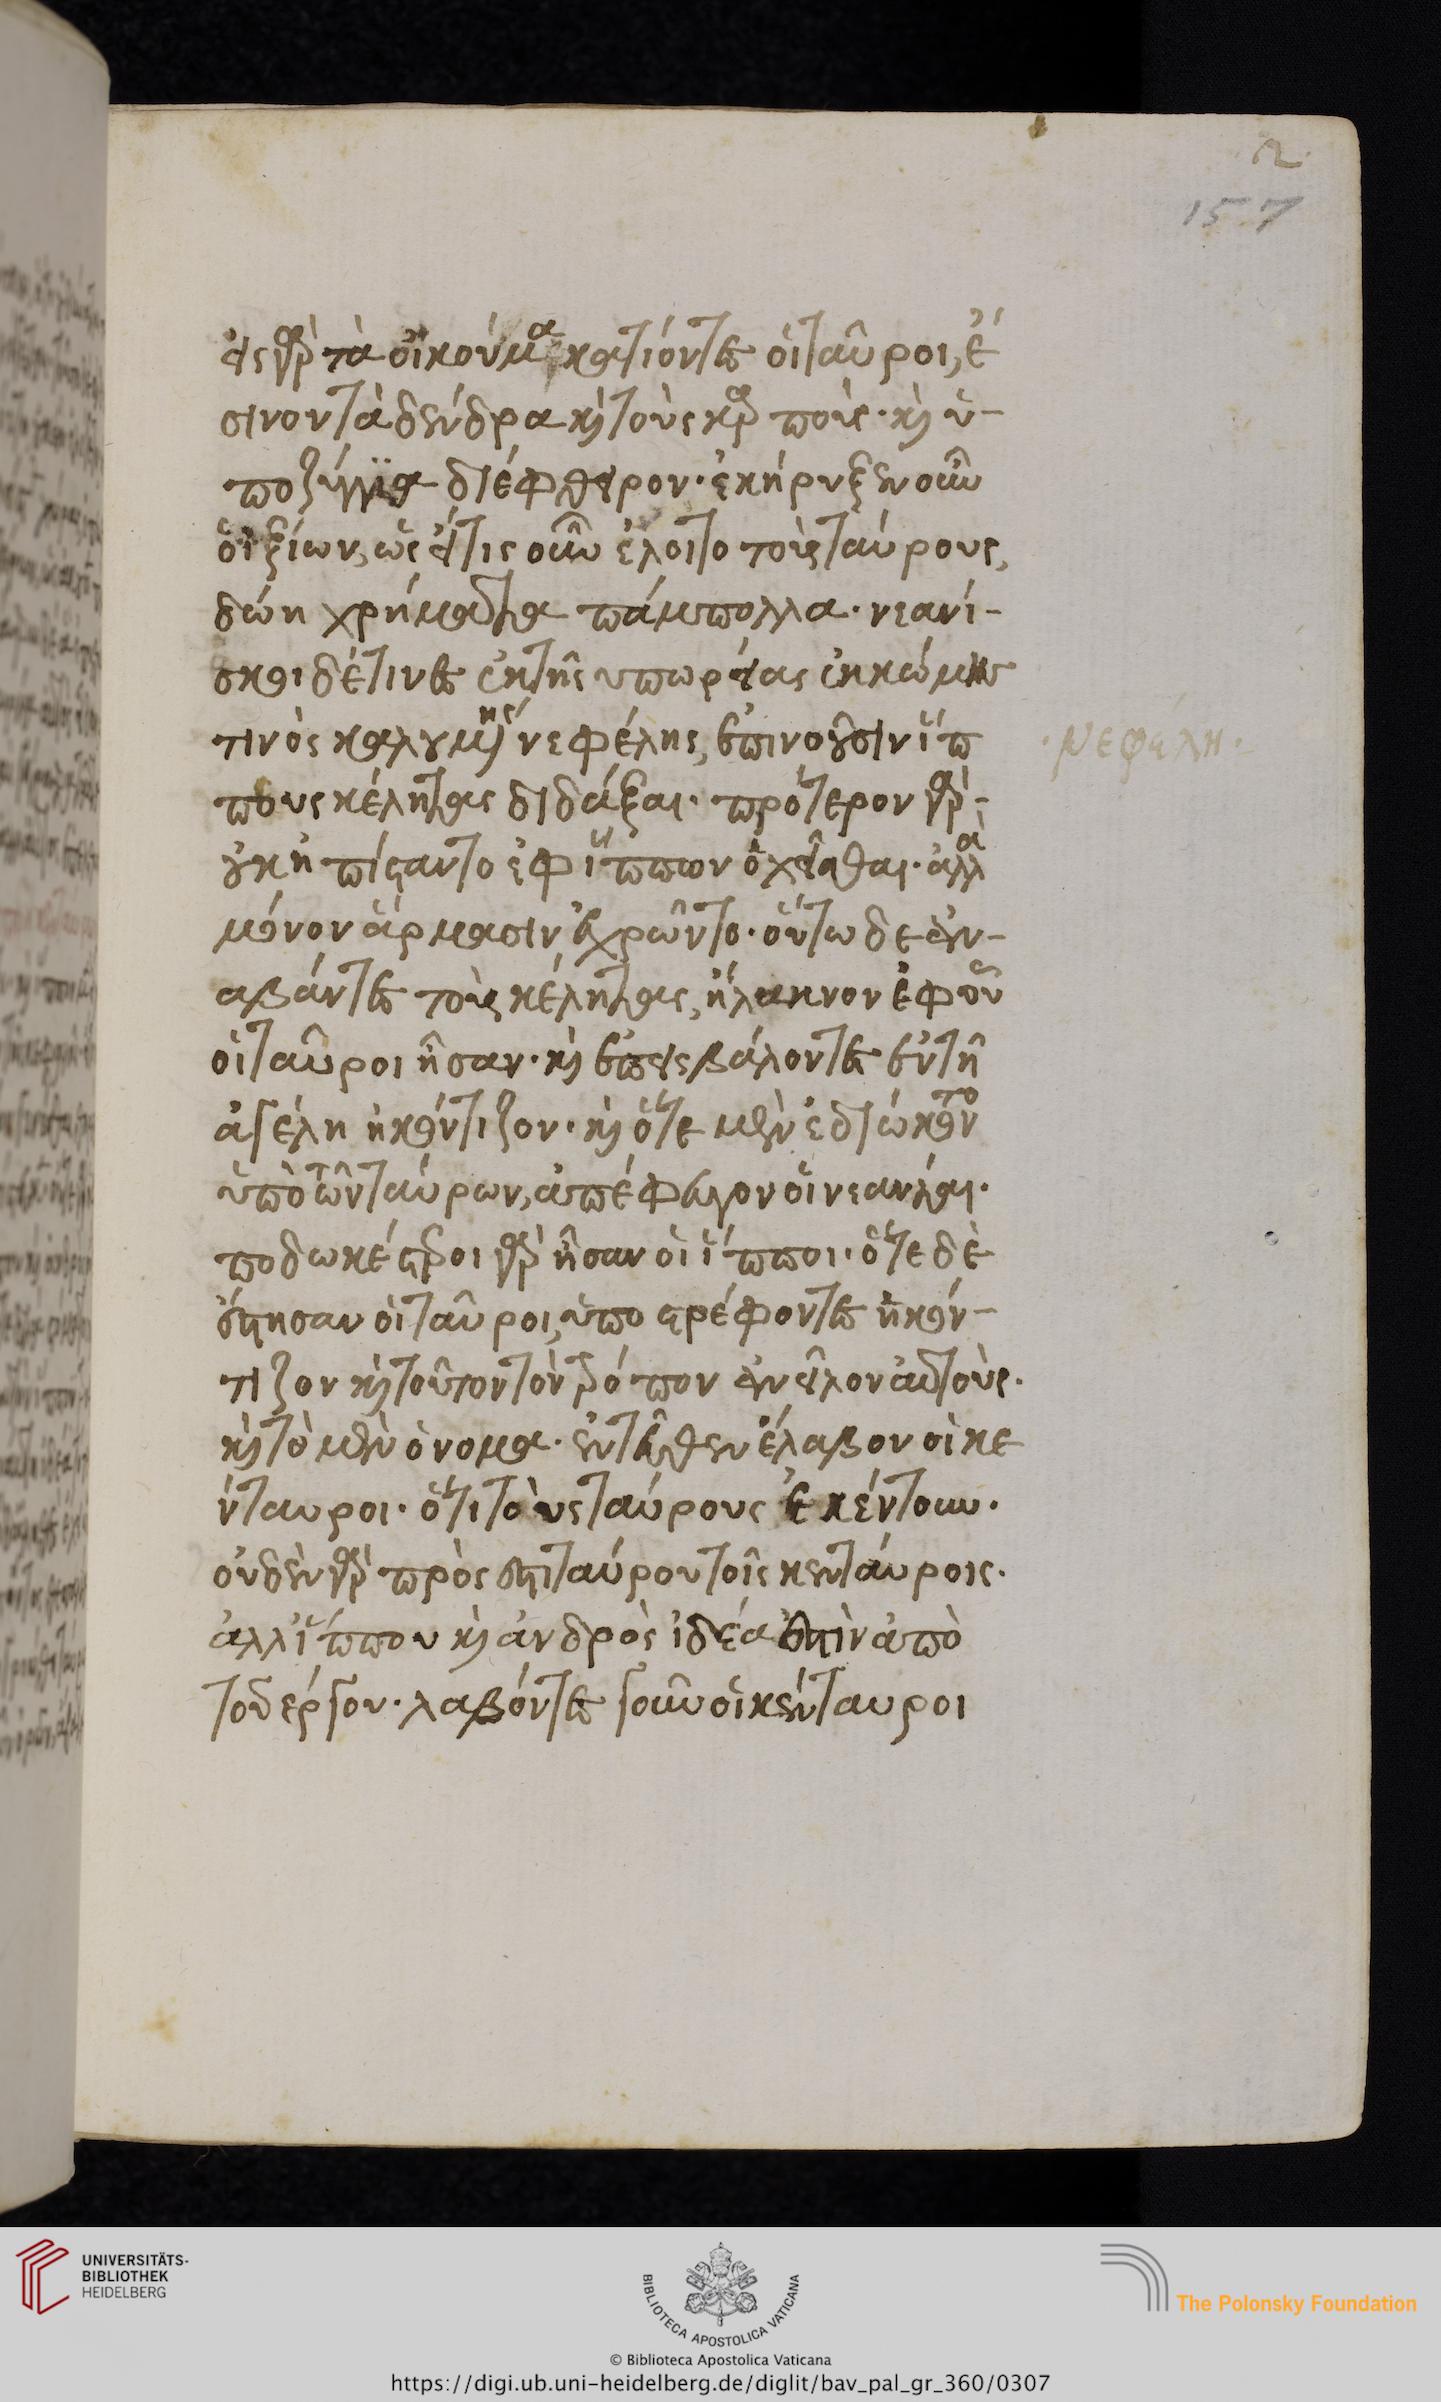 2
157
εἰς γὰρ τὰ οἰκούμενα κατιόντες οἱ ταῦροι, ἐ
σίνον τὰ δένδρα καὶ τοὺς καρποὺς· καὶ ὑ-
ποζύγια διέφθειρον· ἐκήρυξεν οὖν
ὁ ἰξίων, ὡς εἴ τις οὖν ἕλοιτο τοὺς ταύρους,
δώη χρήματα πάμπολλα· νεανί-
σκοι δέ τινες ἐκ τῆς υπωρείας ἐκ κώμης
τινὸς καλουμένης νεφέλης, ἐπινοοῦσιν ἵπ
πους κέλητας διδάξαι· πρότερον γὰρ-
οὐκ ἠπίσταντο ἐφ ἵππων ὀχεῖσθαι· ἀλλὰ
μόνον ἅρμασιν ἐχρῶντο· οὕτω δὲ ἀν-
αβάντες τοὺς κέλητας, ἤλαυνον ἐφ οὗ
οἱ ταῦροι ἦσαν· καὶ ἐπεισβάλοντες ἐν τῆ
ἀγέλη ἠκόντιζον· καὶ ὅτε μὲν ἐδιώκοντο
ὑπὸ τῶν ταύρων, ἀπέφευγον οἱ νεανίαι·
ποδωκέστεροι γὰρ ἦσαν οἱ ἵπποι· ὅτε δὲ
ἔστησαν οἱ ταῦροι, ὑποστρέφοντες ἠκόν-
τιζον καὶ τοῦτον τὸν τρόπον ἀνεῖλον αὐτούς·
καὶ τὸ μὲν ὄνομα· ἐντεῦθεν ἔλαβον οἱ κε
νταυροι· ὅτι τοὺς ταύρους ἐκέντουν·
οὐδὲν γὰρ πρόσεστι ταύρου τοῖς κενταύροις·
ἀλλ ἵππου καὶ ἀνδρὸς ἰδέα ἐστὶν ἀπὸ
τοῦ ἔργου· λαβόντες γοῦν οἱ κένταυροι
· Νεφέλη ·
UNIVERSITÄTS-
BIBLIOTHEK
HEIDELBERG
BIBLIOTECA APOSTOLICA VATICANA
The Polonsky Foundation
© Biblioteca Apostolica Vaticana
https://digi.ub.uni-heidelberg.de/diglit/bav_pal_gr_360/0307